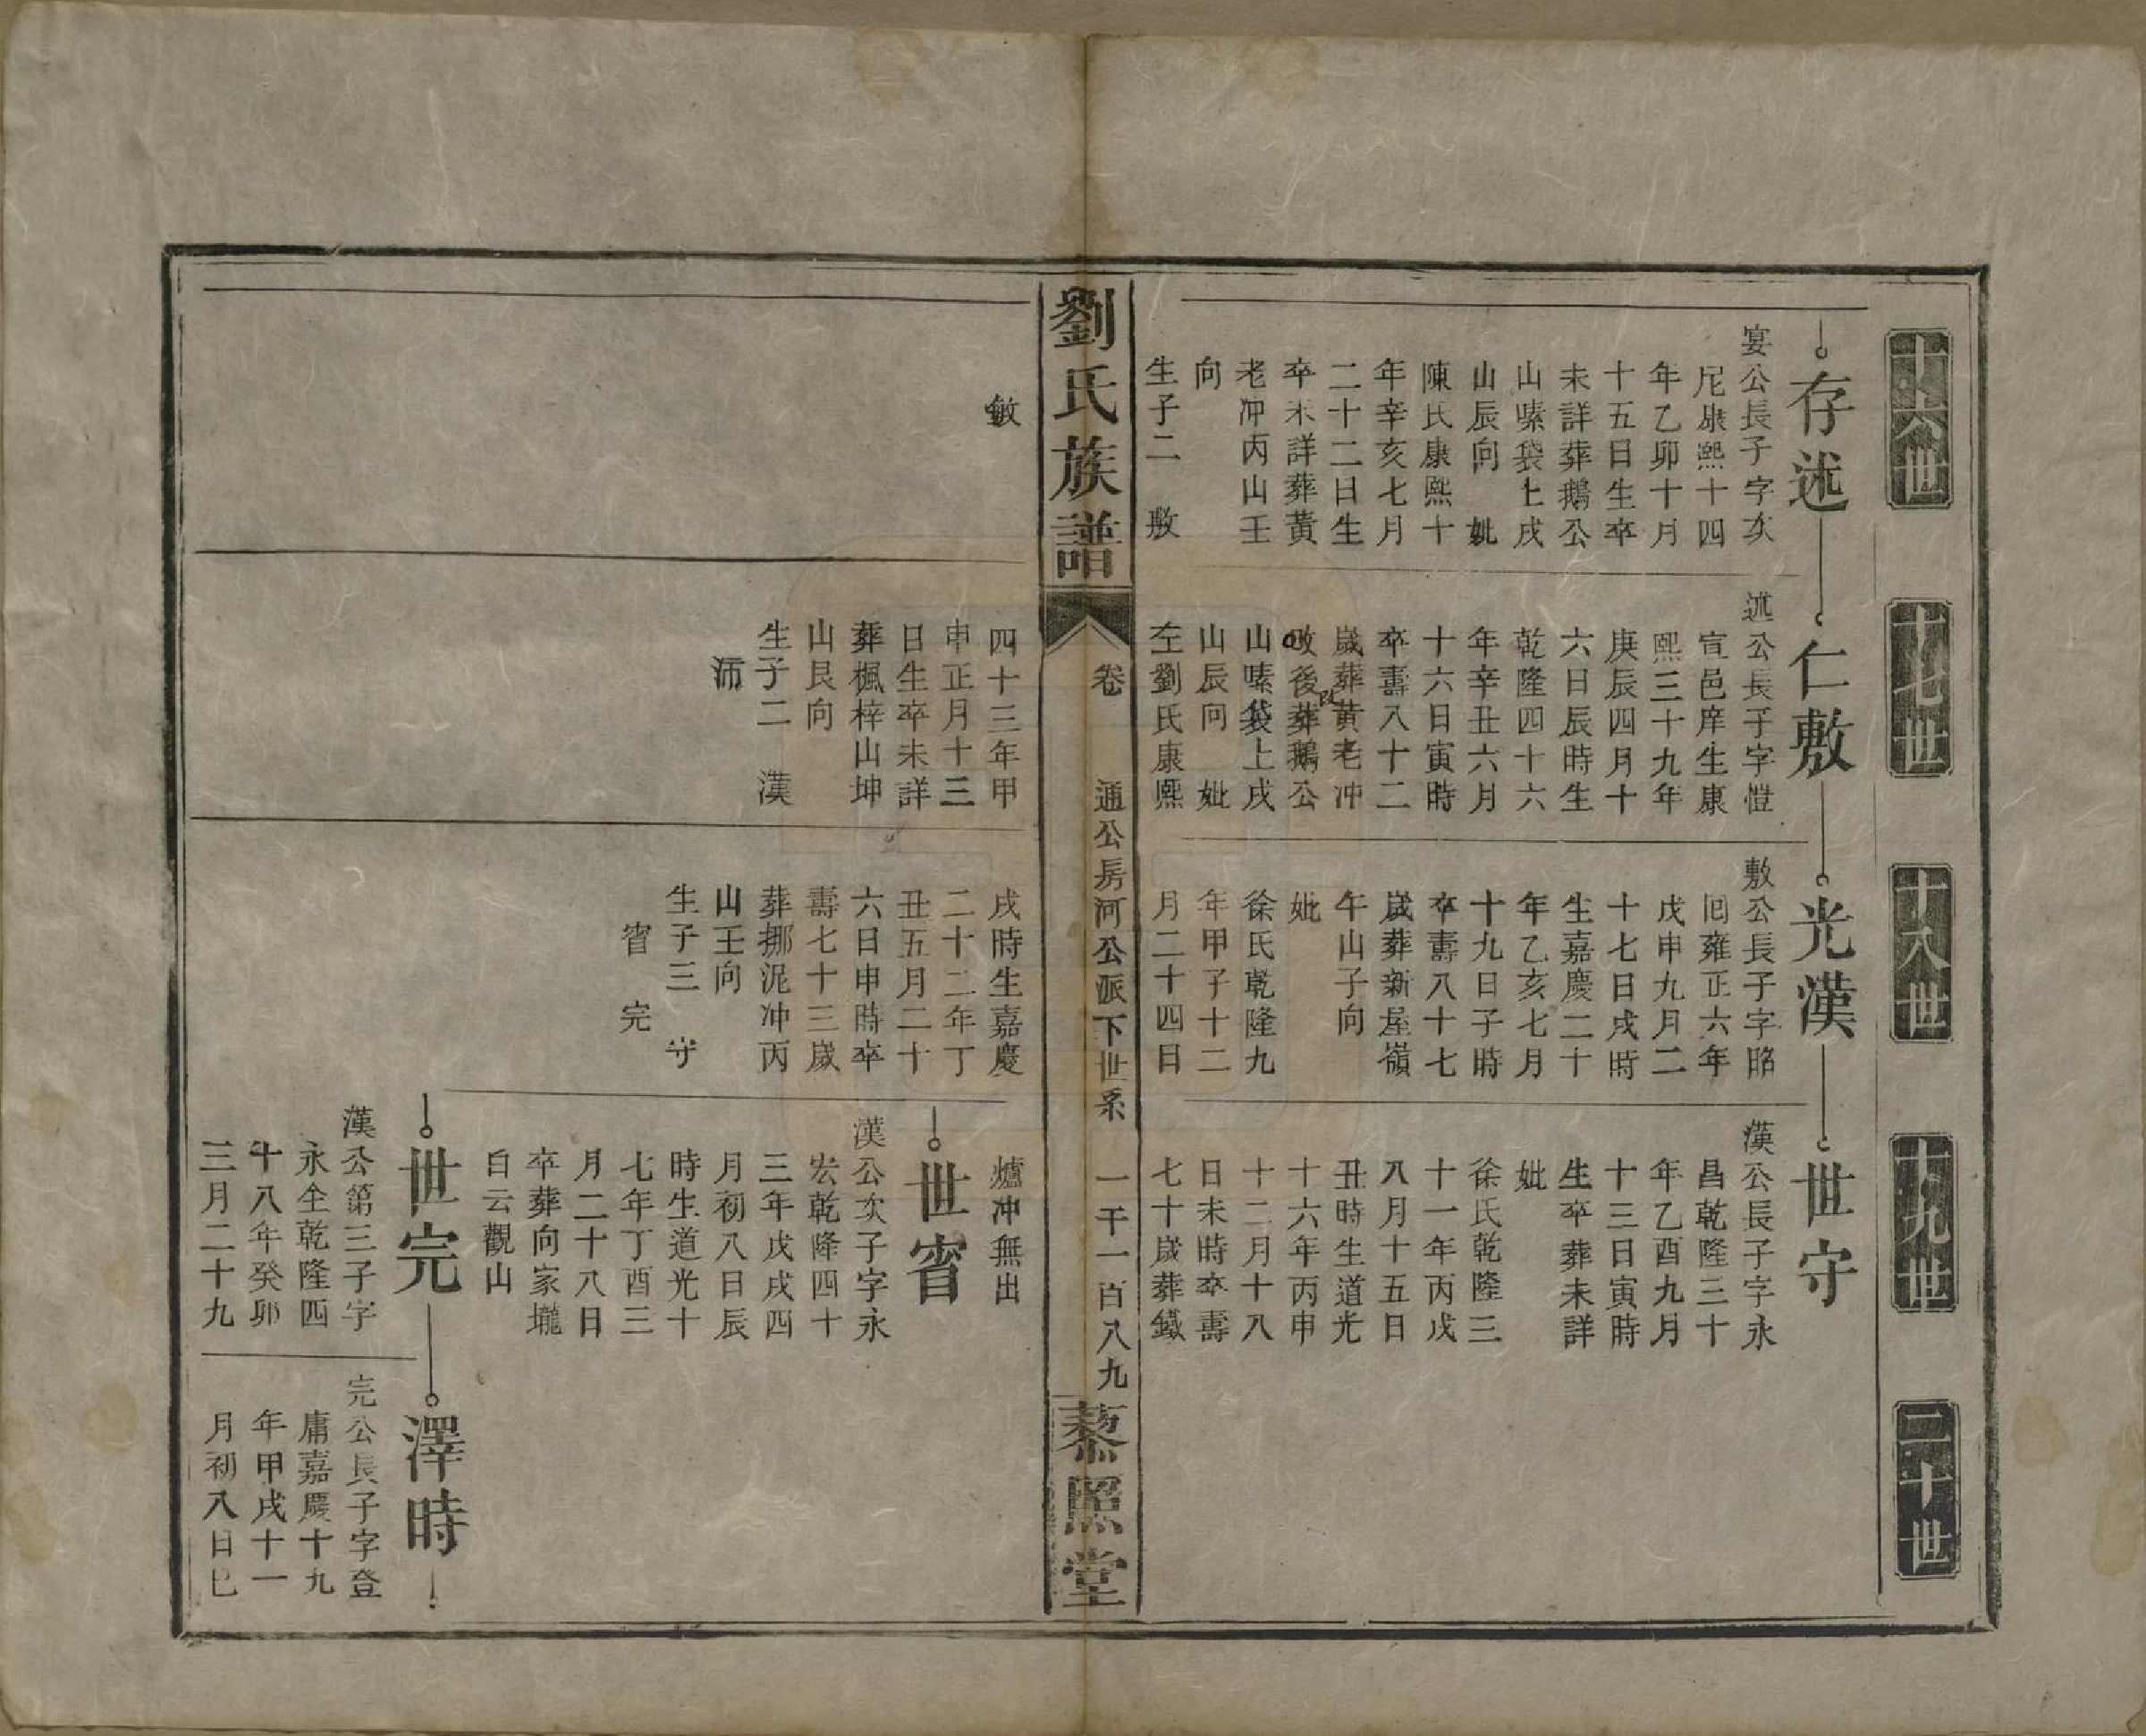 十六世
十七世
十八世
十九世
二十世
存述
宴公長子字友
尼康熙十四
年乙卯十月
十五日生卒
未詳葬鵝公
山嗉袋上戌
山辰向 妣
陳氏康熙十
年辛亥七月
二十二日生
卒未詳葬黃
老冲丙山壬
向
生子二 敷
敏
仁敷
述公長子字愷
宣邑庠生康
熙三十九年
庚辰四月十
六日辰時生
乾隆四十六
年辛丑六月
十六日寅時
卒壽八十二
歲葬黃老冲
改後葬鵝公
山嗉袋上戌
山辰向 妣
左劉氏康熙
四十三年甲
申正月十三
日生卒未詳
葬楓梓山坤
山艮向
生子二 漢
沛
光漢
敷公長子字昭
回雍正六年
戊申九月二
十七日戌時
生嘉慶二十
年乙亥七月
十九日子時
卒壽八十七
歲葬新屋嶺
午山子向
妣
徐氏乾隆九
年甲子十二
月二十四日
戌時生嘉慶
二十二年丁
丑五月二十
六日申時卒
壽七十三歲
葬挪泥冲丙
山壬向
生子三 守
宵 完
世守
漢公長子字永
昌乾隆三十
年乙酉九月
十三日寅時
生卒葬未詳
妣
徐氏乾隆三
十一年丙戌
八月十五日
丑時生道光
十六年丙申
十二月十八
日未時卒壽
七十歲葬鐵
爐冲無出
世宵
漢公次子字永
宏乾隆四十
三年戊戌四
月初八日辰
時生道光十
七年丁酉三
月二十八日
卒葬向家壠
自云觀山
世完
漢公第三子字
永全乾隆四
十八年癸卯
三月二十九
澤時
完公長子字登
庸嘉慶十九
年甲戌十一
月初八日巳
劉氏族譜
卷
通公房河公派下世系
一千一百八九
藜照堂